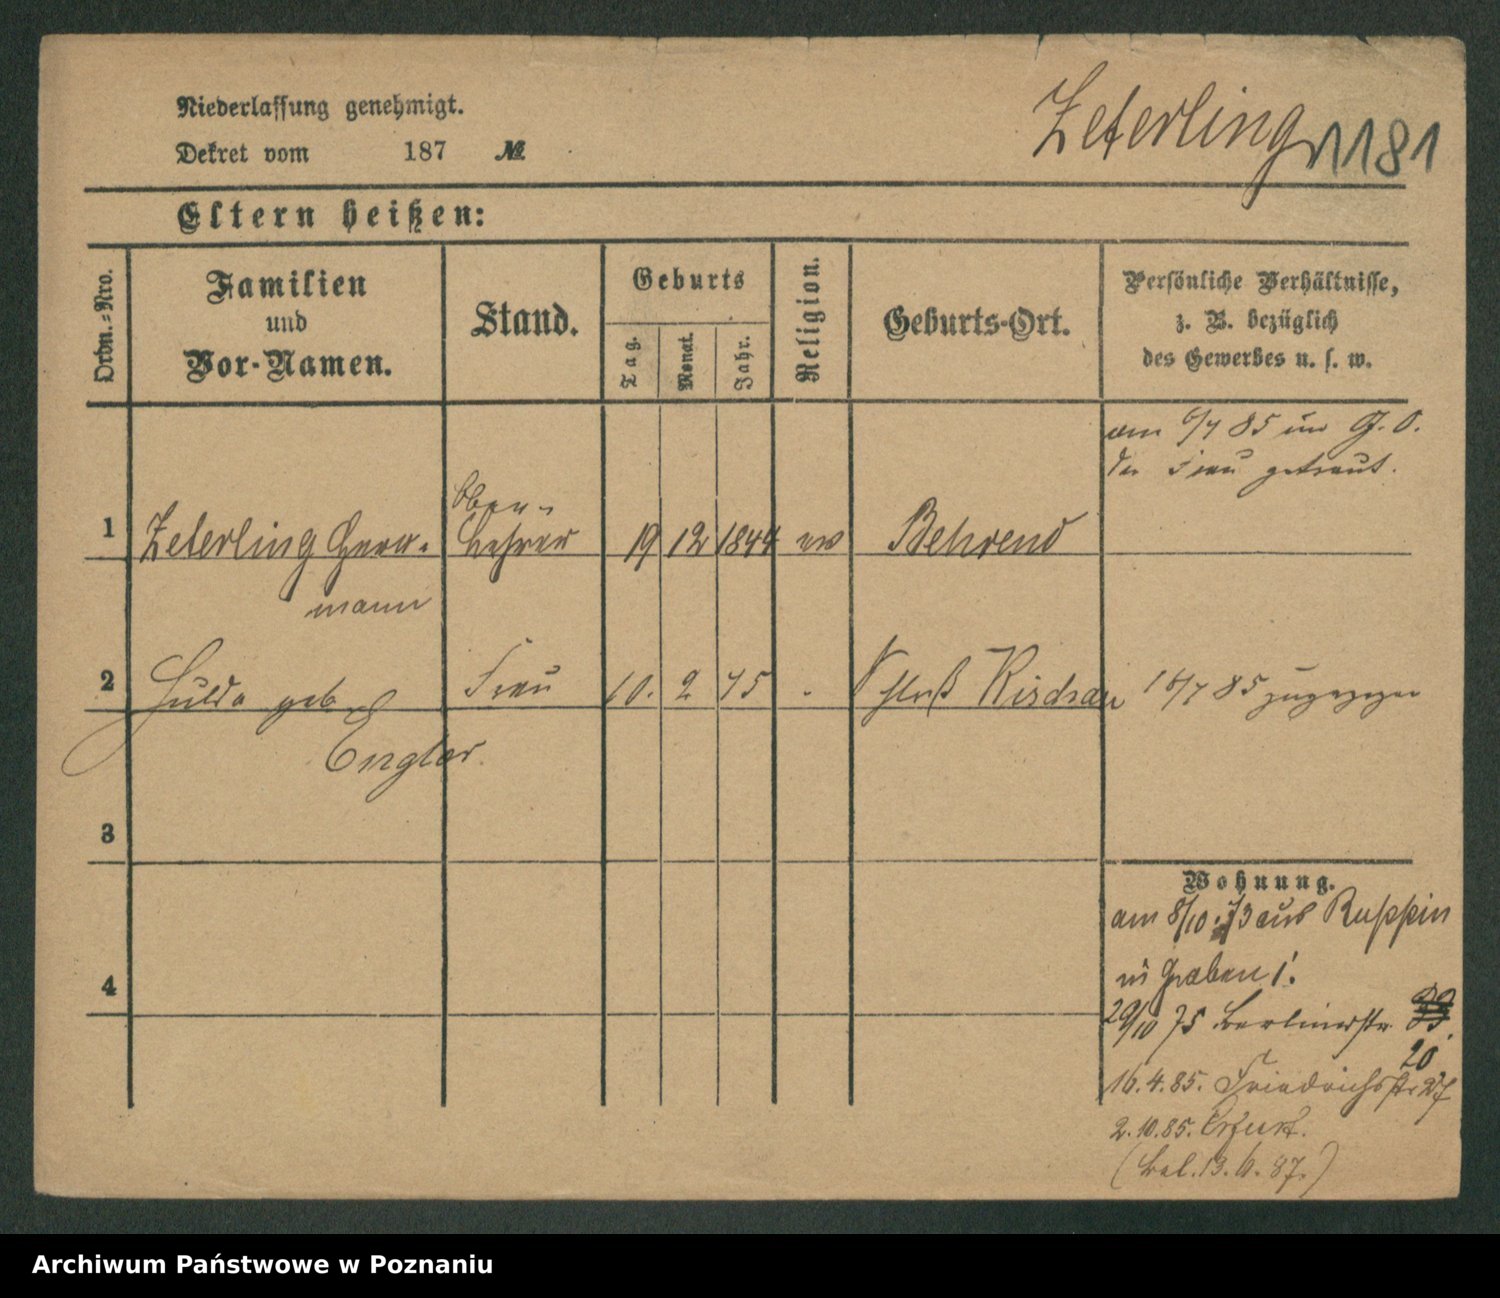 Niederlassung genehmigt.
Zeterling 1181
Dekret vom 187 №
Eltern heißen:
Ordn.-Nro.
Familien
und
Vor-Namen.
Stand.
Geburts
Tag.
Monat.
Jahr.
Religion.
Geburts-Ort.
Persönliche Verhältnisse,
z. B. bezüglich
des Gewerbes u. s. w.
am 6/7 85 in G. O.
die Frau getraut.
Ober-
1 Zeterling Herr- Lehrer 19 12 1844 ev Behrend
mann
2 Hulda geb. Frau 10. 2 75 Schloß Kischau 16/7 85 zugezogen
Engler.
3
Wohnung.
am 8/10. 73 aus Ruppin
in Graben 1.
4
29/10 75 Berlinerstr.
20
16.4.85. Friedrichsstr
2.10.85. Erfurt.
(Bel. 13.6.87.)
Archiwum Państwowe w Poznaniu